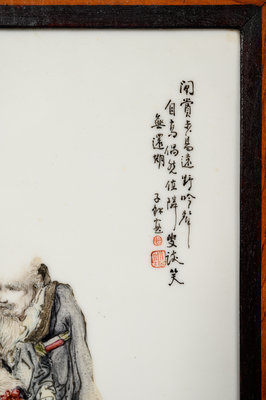 閒賞步易遠野吟聲
自高偶然值隣叟談笑
無還期
子